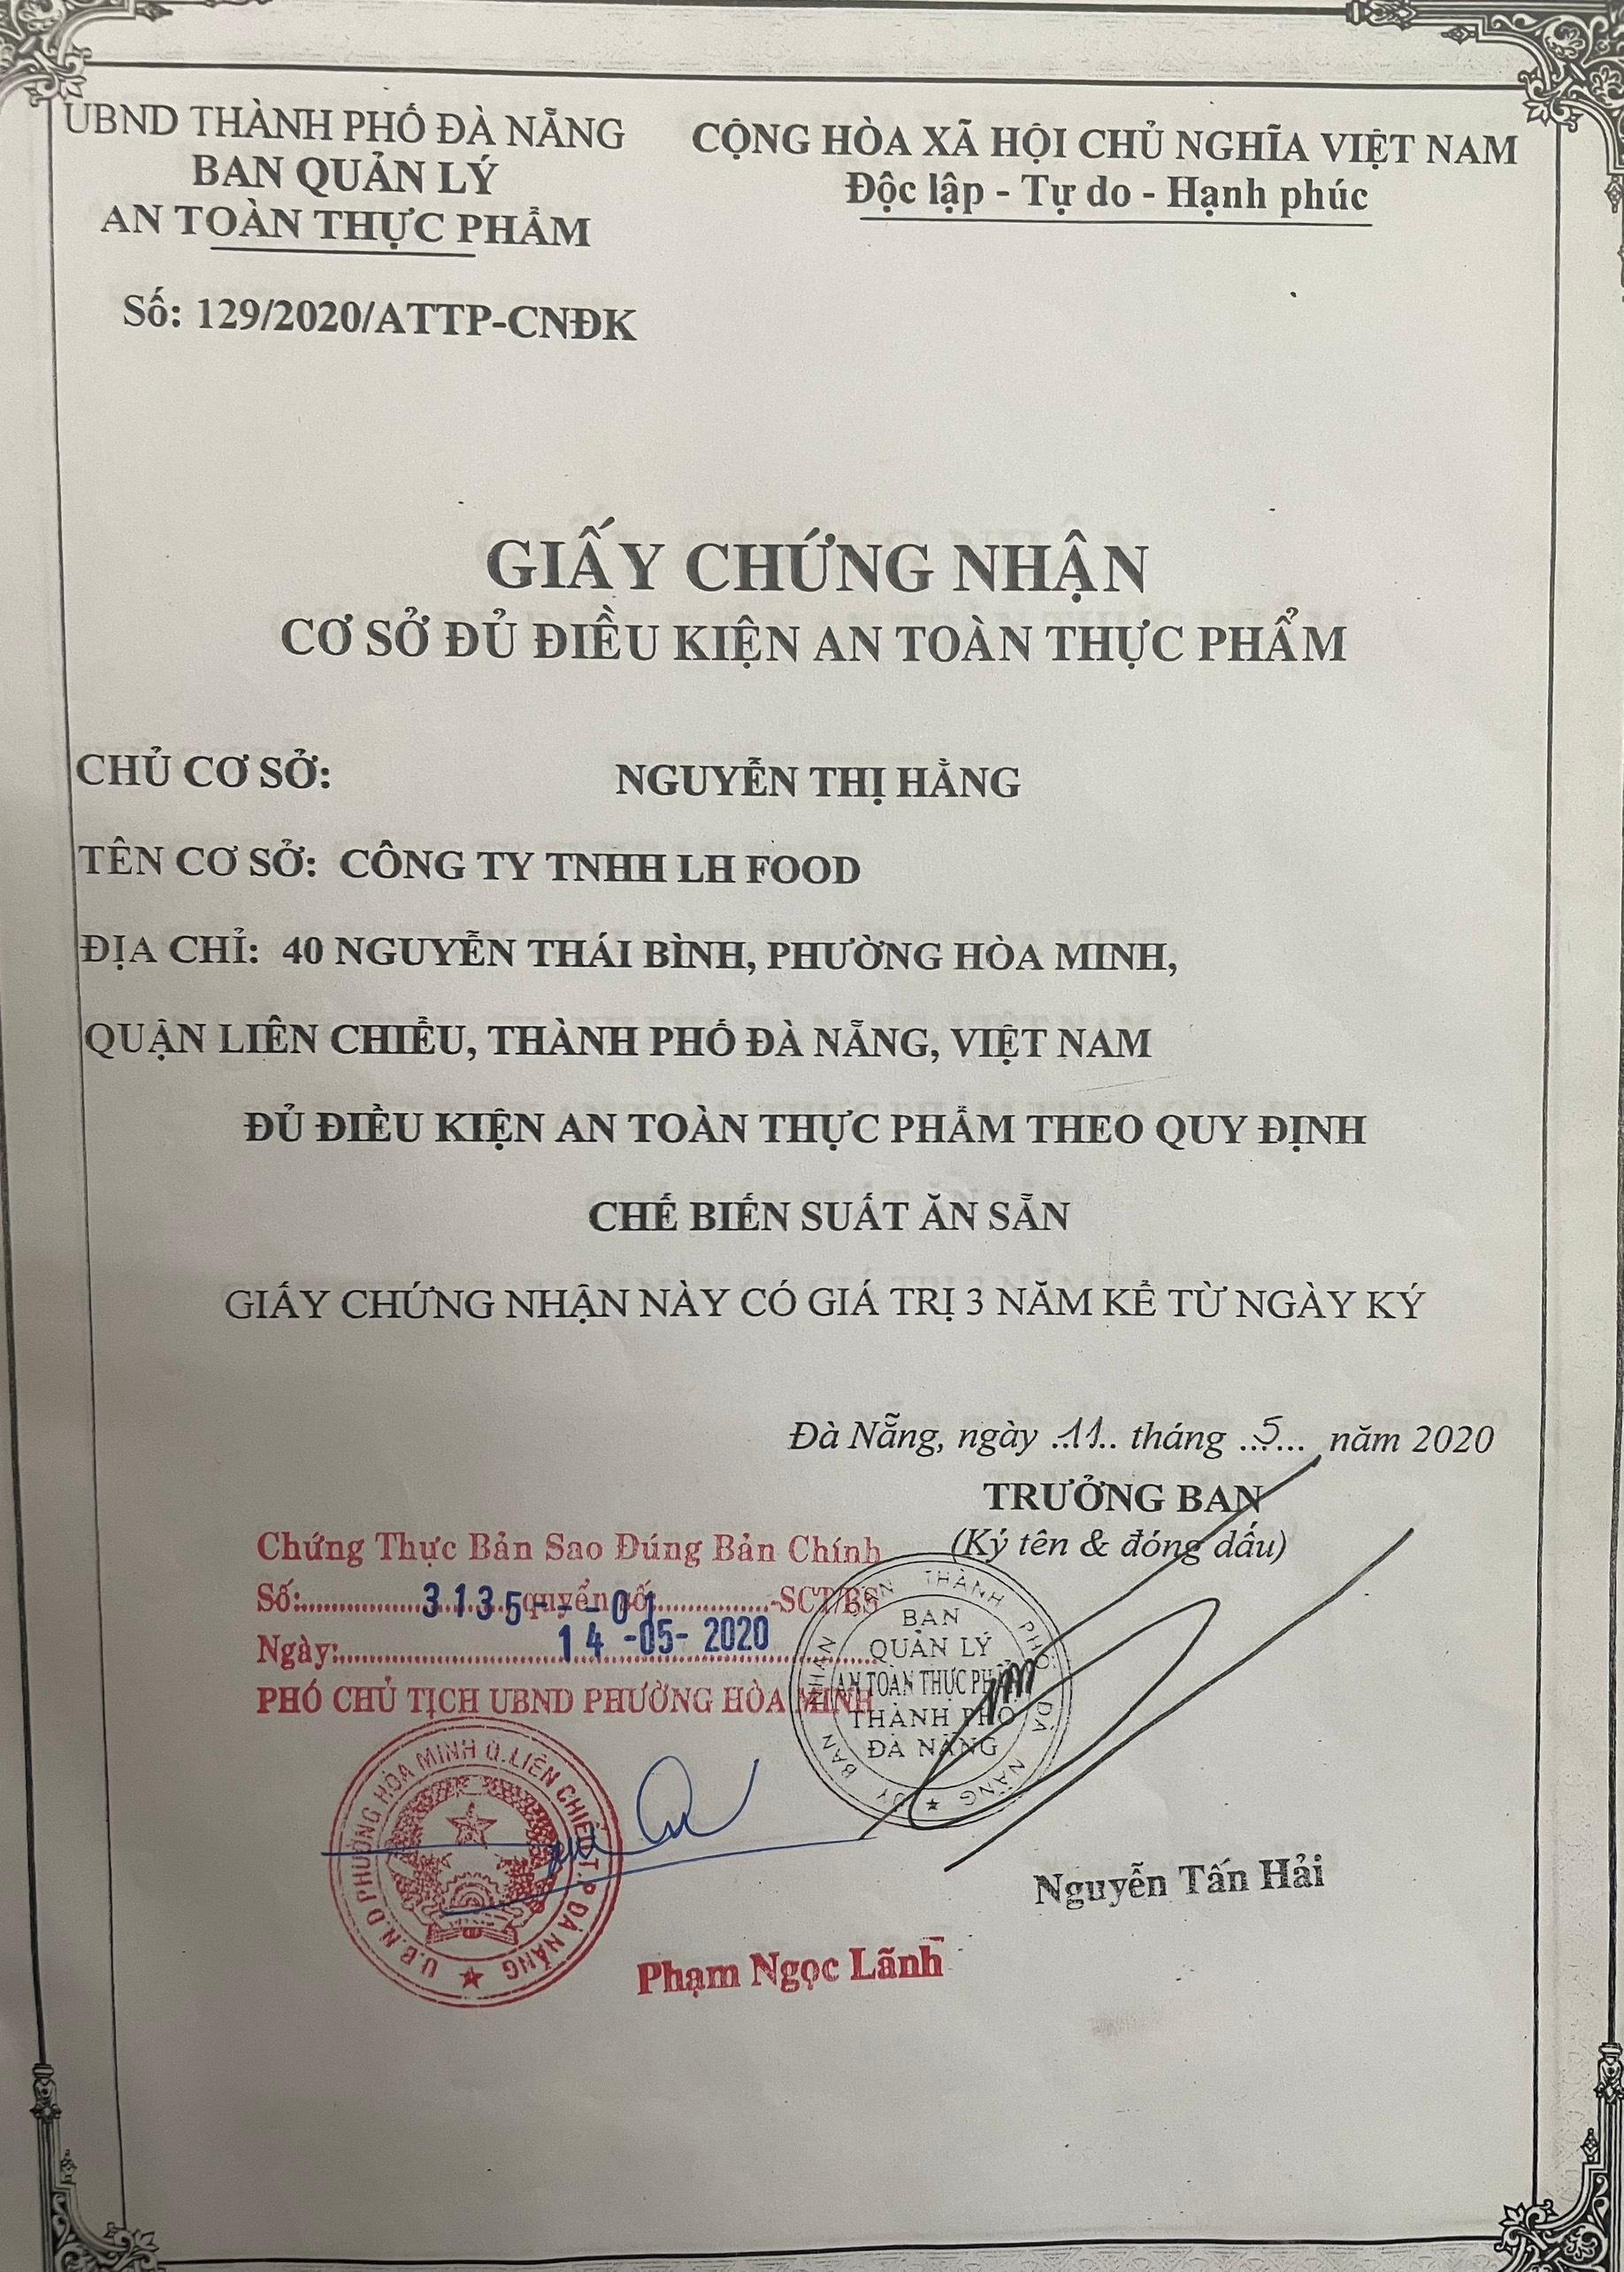 UBND THÀNH PHỐ ĐÀ NẴNG
BAN QUẢN LÝ
AN TOÀN THỰC PHẨM
CỘNG HÒA XÃ HỘI CHỦ NGHĨA VIỆT NAM
Độc lập - Tự do - Hạnh phúc
Số: 129/2020/ATTP-CNĐK
GIẤY CHỨNG NHẬN
CƠ SỞ ĐỦ ĐIỀU KIỆN AN TOÀN THỰC PHẨM
CHỦ CƠ SỞ: NGUYỄN THỊ HẰNG
TÊN CƠ SỞ: CÔNG TY TNHH LH FOOD
ĐỊA CHỈ: 40 NGUYỄN THÁI BÌNH, PHƯỜNG HÒA MINH,
QUẬN LIÊN CHIỂU, THÀNH PHỐ ĐÀ NẴNG, VIỆT NAM
ĐỦ ĐIỀU KIỆN AN TOÀN THỰC PHẨM THEO QUY ĐỊNH
CHẾ BIẾN SUẤT ĂN SẴN
GIẤY CHỨNG NHẬN NÀY CÓ GIÁ TRỊ 3 NĂM KỂ TỪ NGÀY KÝ
Đà Nẵng, ngày 11 tháng 5 năm 2020
TRƯỞNG BAN
(Ký tên & đóng dấu)
Chứng Thực Bản Sao Đúng Bản Chính
Số: 3135 quyển số 01 -SCT/BS
Ngày: 14 -05- 2020
PHÓ CHỦ TỊCH UBND PHƯỜNG HÒA MINH
ỦY BAN NHÂN DÂN THÀNH PHỐ ĐÀ NẴNG
BAN
QUẢN LÝ
AN TOÀN THỰC PHẨM
THÀNH PHỐ
ĐÀ NẴNG
U.B.N.D PHƯỜNG HÒA MINH Q.LIÊN CHIỂU T.P ĐÀ NẴNG
Nguyễn Tấn Hải
Phạm Ngọc Lãnh